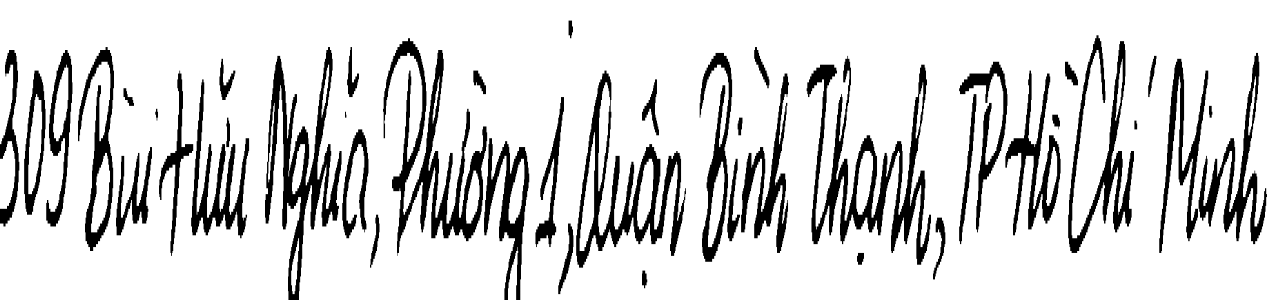 309 Bùi Hữu Nghĩa, Phường 1, Quận Bình Thạnh, TP Hồ Chí Minh